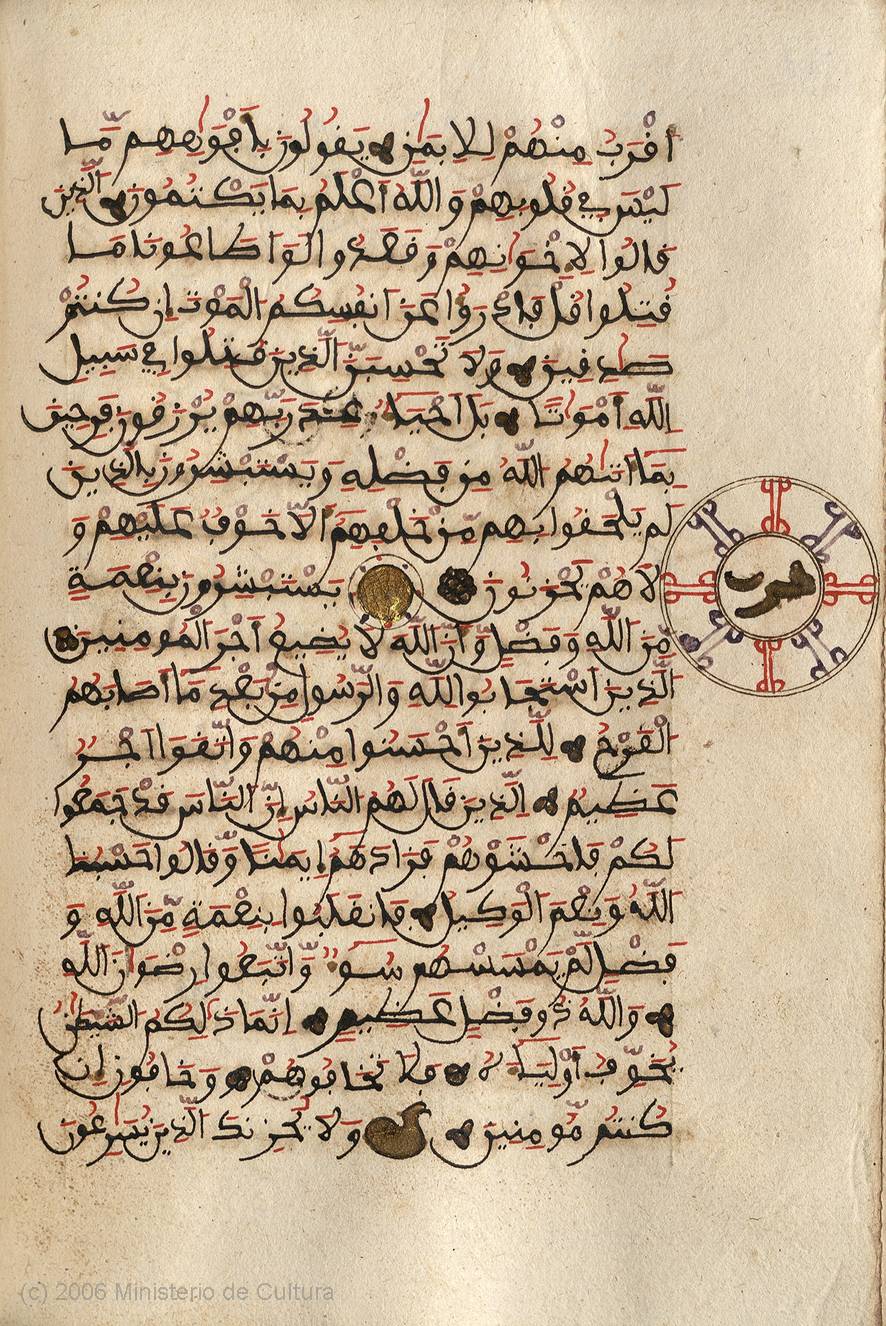 اقرب منهم للايمن يقولون بافوههم ما
ليس في قلوبهم والله اعلم بما يكتمون الذين
قالوا لاخونهم وقعدوا لو اطاعونا ما
قتلوا قل فادرءوا عن انفسكم الموت ان كنتم
صدقين ولا تحسبن الذين قتلوا في سبيل
الله اموتا بل احياء عند ربهم يرزقون فرحين
بما اتيهم الله من فضله ويستبشرون بالذين
لم يلحقوا بهم من خلفهم الا خوف عليهم و
لا هم يحزنون يستبشرون بنعمة
حزب
من الله وفضل وان الله لا يضيع اجر المومنين
الذين استجابوا لله والرسول من بعد ما اصابهم
القرح للذين احسنوا منهم واتقوا اجر
عظيم الذين قال لهم الناس ان الناس قد جمعوا
لكم فاخشوهم فزادهم ايمنا وقالوا حسبنا
الله ونعم الوكيل فانقلبوا بنعمة من الله و
فضل لم يمسسهم سوء واتبعوا رضوان الله
والله ذو فضل عظيم انما ذلكم الشيطن
يخوف اولياءه فلا تخافوهم وخافون ان
كنتم مومنين ولا يحزنك الذين يسرعون
(c) 2006 Ministerio de Cultura